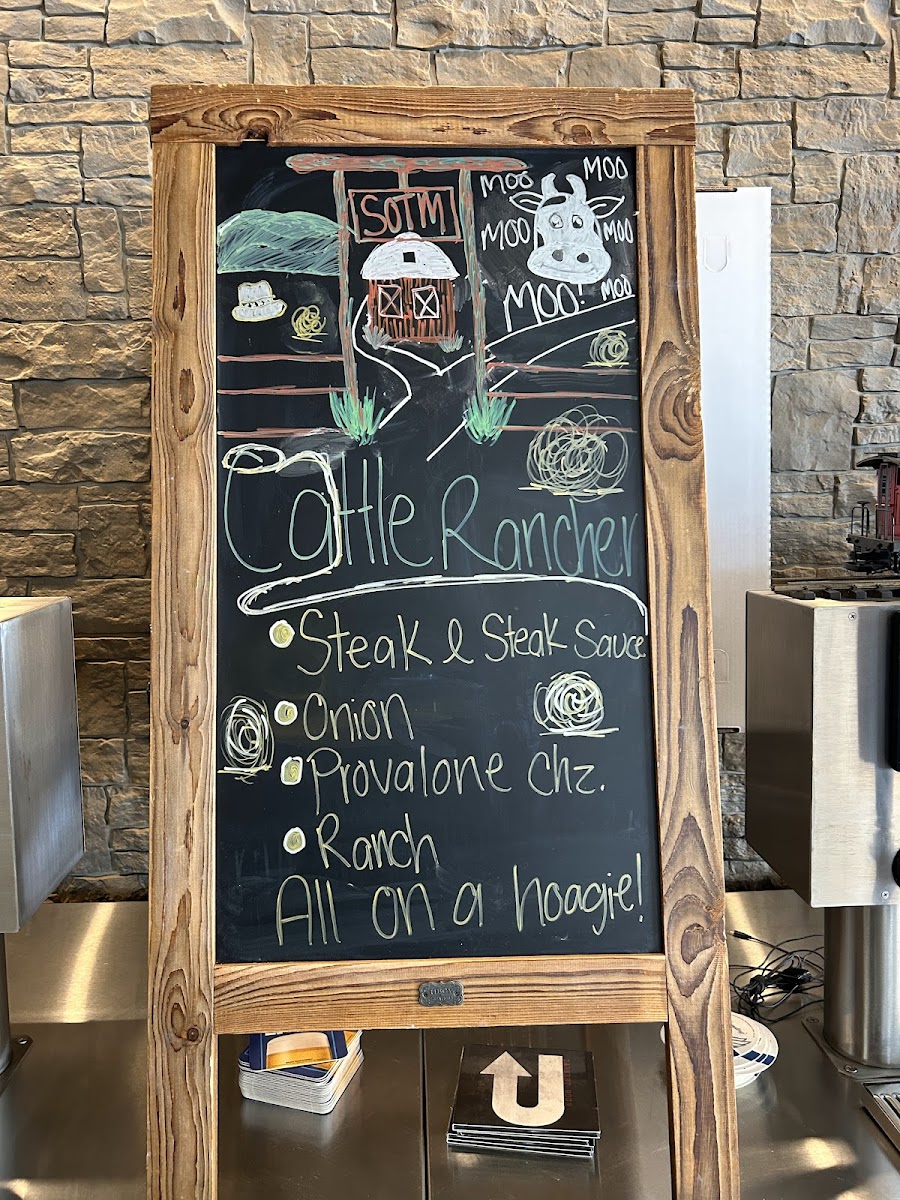 SOTM
MOO MOO
MOO MOO
MOO MOO
Cattle Rancher
Steak & Steak Sauce
Onion
Provalone Chz.
Ranch
All on a hoagie!